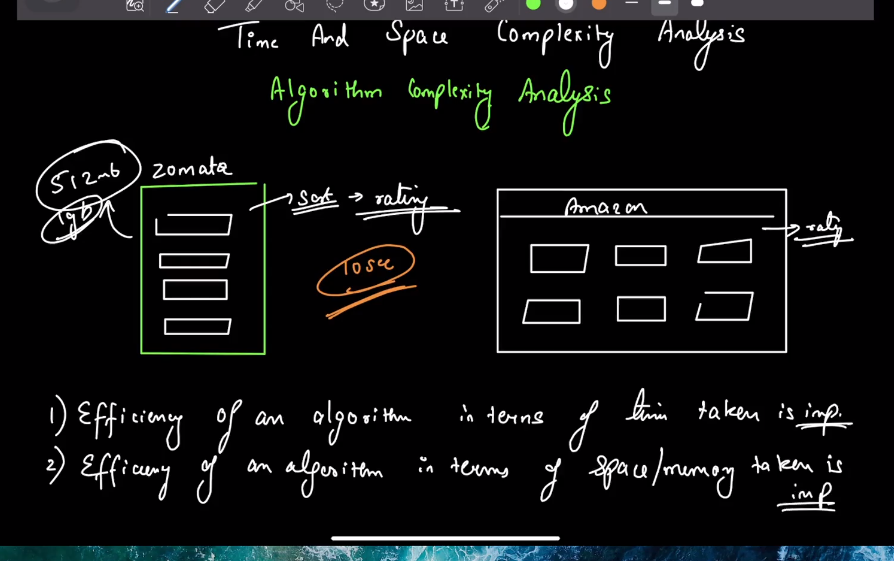 Time And Space Complexity Analysis
Algorithm Complexity Analysis
512mb
1gb
Zomato
Sort → rating
10sec
Amazon
1) Efficiency of an algorithm in terms of time taken is imp.
2) Efficiency of an algorithm in terms of space/memory taken is
imp